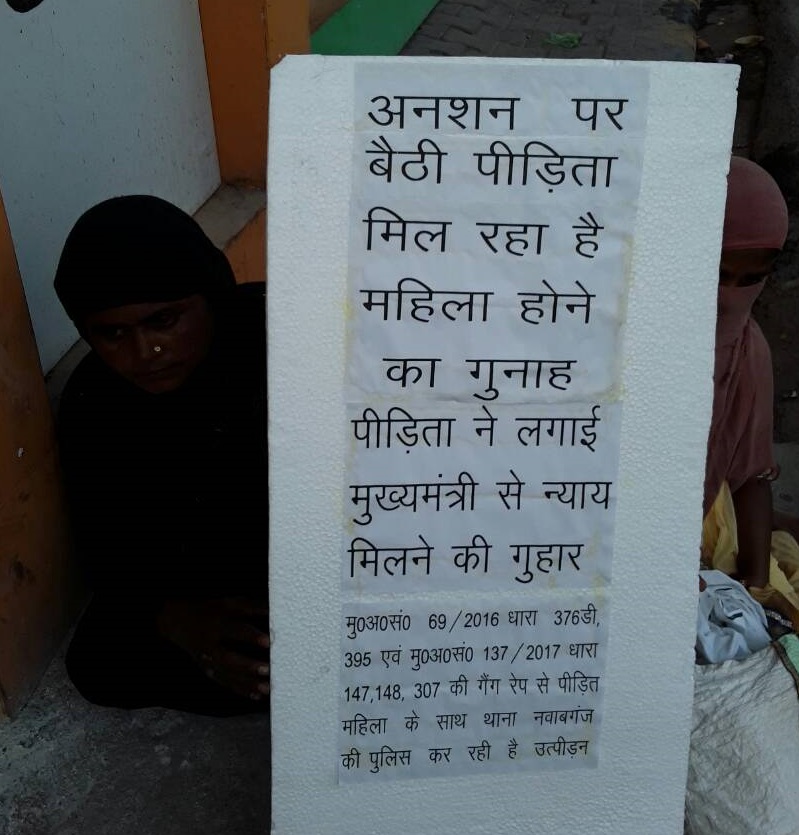 अनशन पर
बैठी पीड़िता
मिल रहा है
महिला होने
का गुनाह
पीड़िता ने लगाई
मुख्यमंत्री से न्याय
मिलने की गुहार
मु0अ0सं0 69/2016 धारा 376डी,
395 एवं मु0अ0सं0 137/2017 धारा
147,148, 307 की गैंग रेप से पीड़ित
महिला के साथ थाना नवाबगंज
की पुलिस कर रही है उत्पीड़न